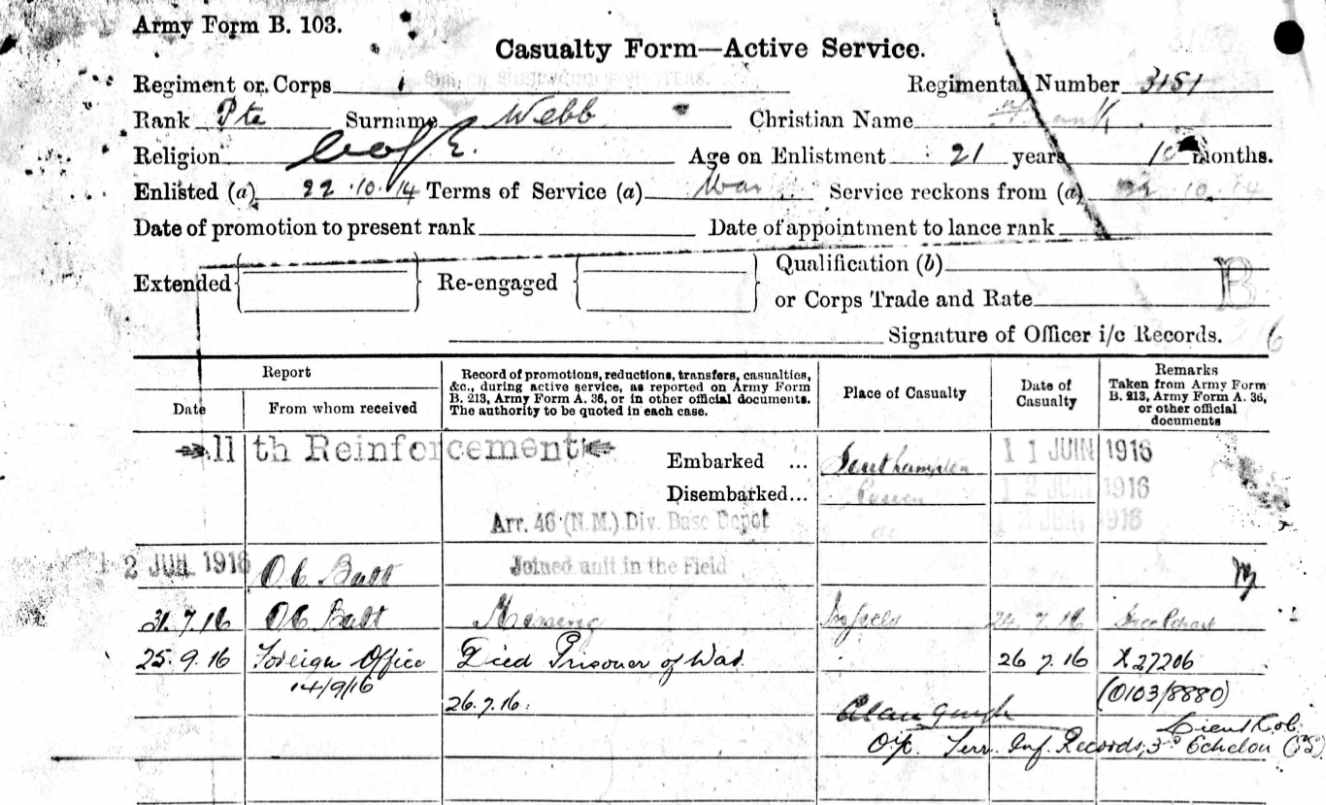 Army Form B. 103.
Casualty Form—Active Service.
Regiment or Corps Regimental Number 3151
Rank Pte Surname Webb Christian Name
Religion C of E. Age on Enlistment 21 years 10 Months.
Enlisted (a) 22.10.14 Terms of Service (a) War Service reckons from (a) 22.10.14
Date of promotion to present rank Date of appointment to lance rank
Extended Re-engaged Qualification (b)
or Corps Trade and Rate
B
Signature of Officer i/c Records.
Report
Date From whom received
Record of promotions, reductions, transfers, casualties,
&c., during active service, as reported on Army Form
B. 213, Army Form A. 36, or in other official documents.
The authority to be quoted in each case.
Place of Casualty
Date of
Casualty
Remarks
Taken from Army Form
B. 213, Army Form A. 36,
or other official
documents
11 th Reinforcement
Embarked ... Southampton 11 JUN 1916
Disembarked... Rouen 12 JUN 1916
Arr. 46 (N.M.) Div. Base Depot 1916
2 JUL 1916 O.C. Batt Joined unit in the Field
31.7.16 O.C. Batt Missing In field 24.7.16
25.9.16 Foreign Office Died Prisoner of War. 26.7.16 X27206
14/9/16 26.7.16. (0103/8880)
Lieut Col.
O/c. Terr. Inf. Records, 3rd Echelon